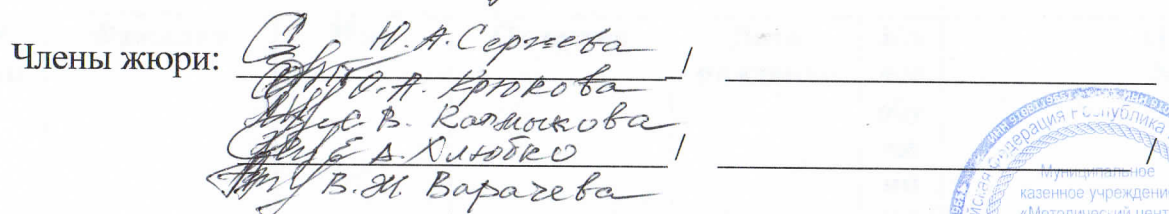 Члены жюри: Ю.А. Сергеева /
О.А. Крюкова
С.В. Калмыкова
Е.А. Хлюбко / /
В.Ж. Варачева
Муниципальное
казенное учреждение
«Методический центр